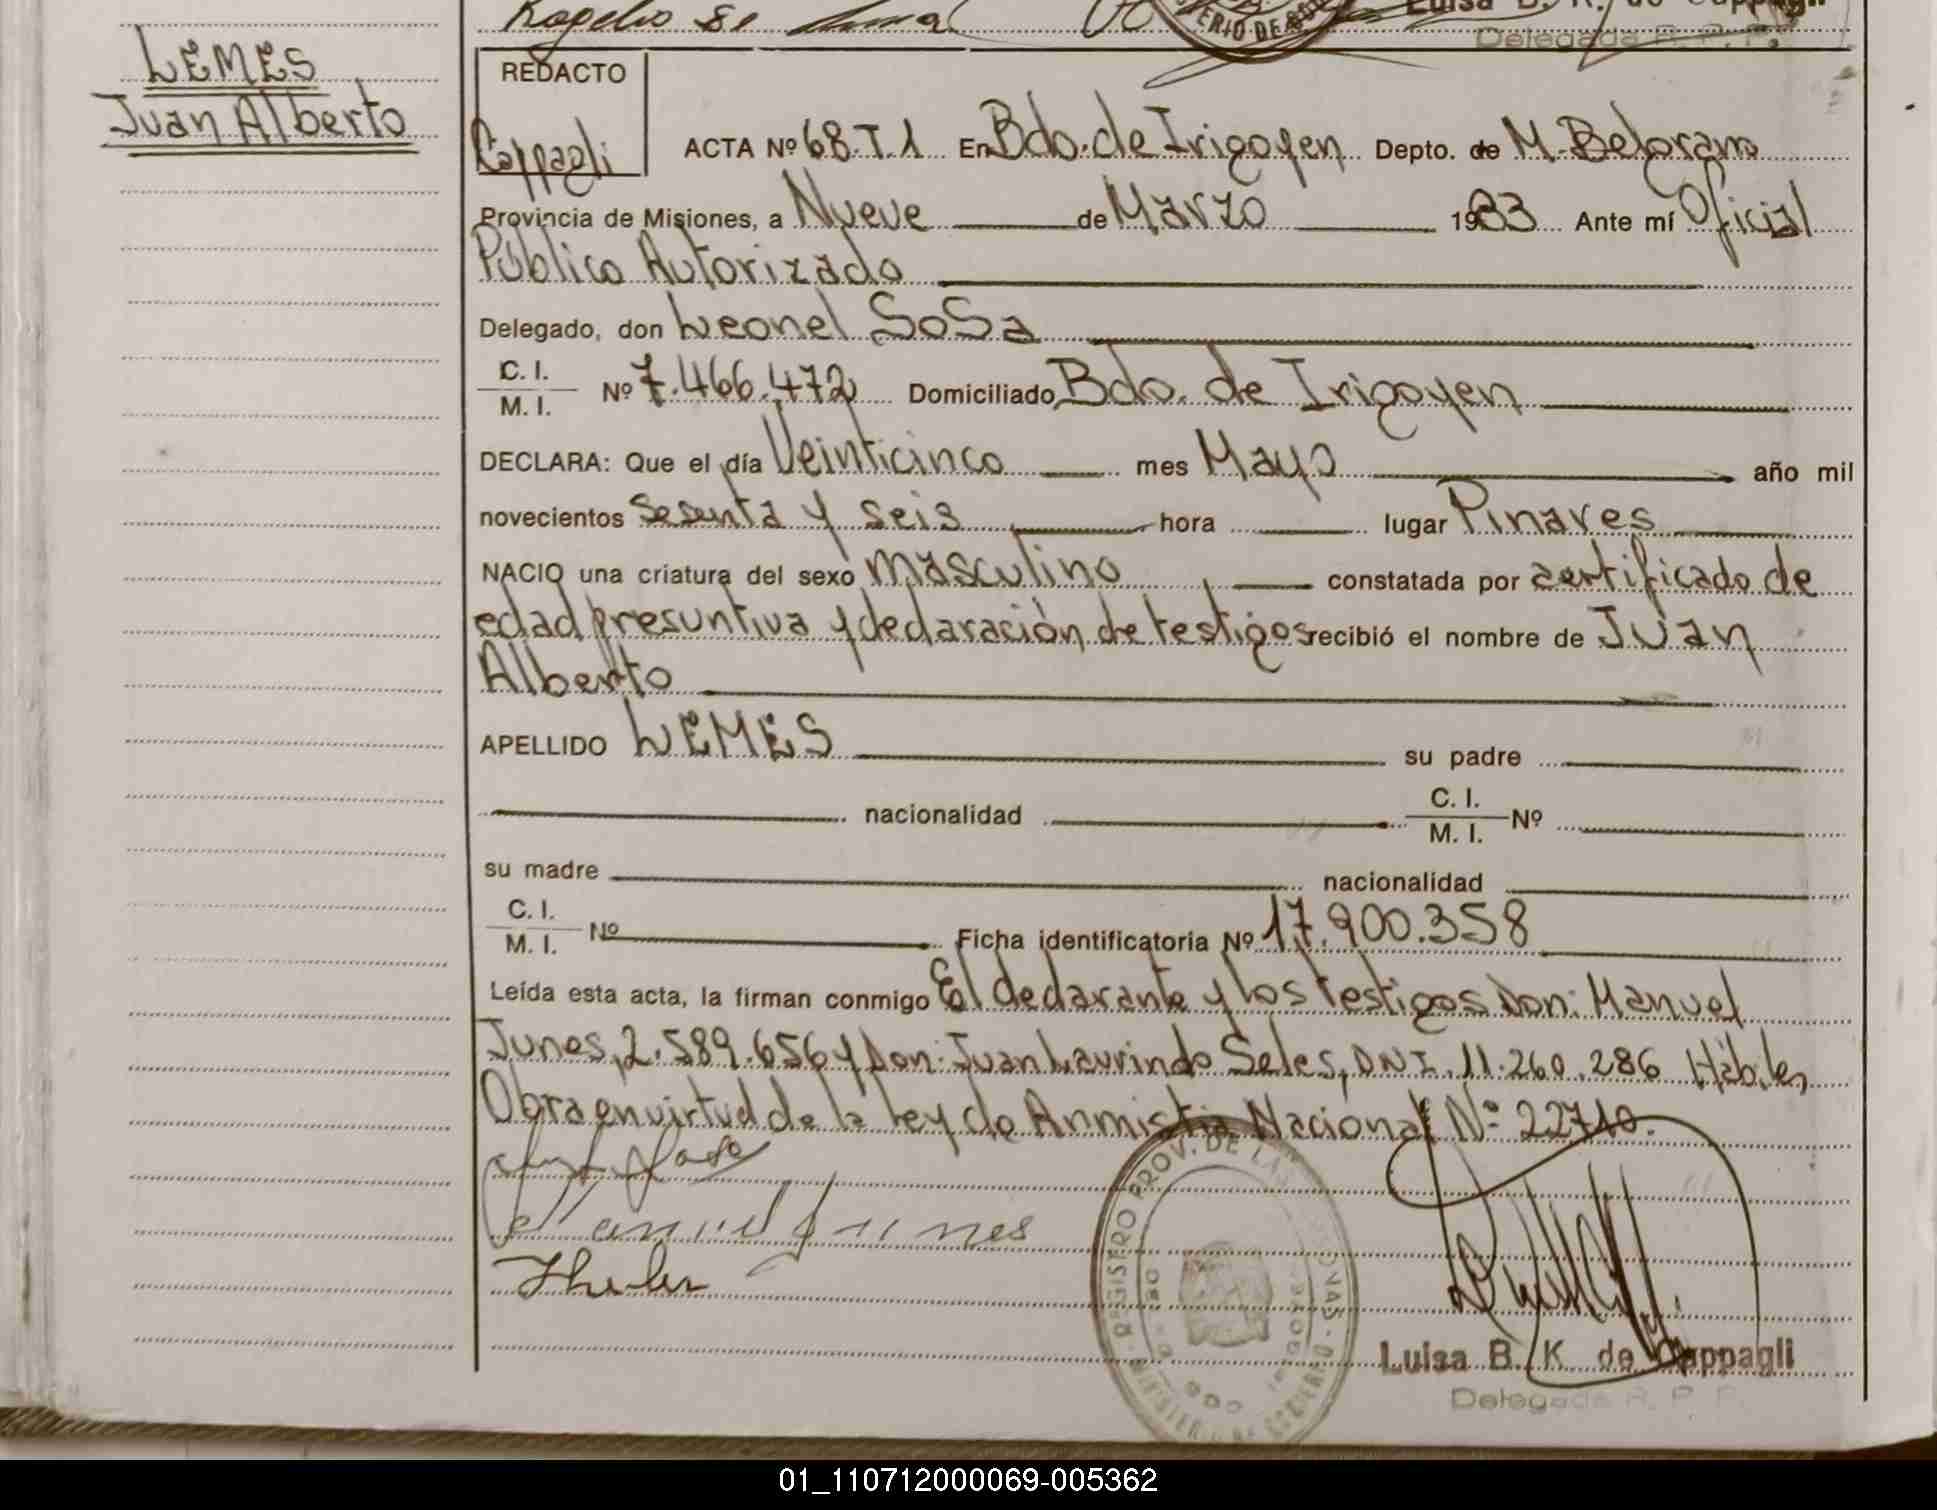 Rogelio de Lima
LEMES
Juan Alberto
REDACTO
Cappagli
ACTA Nº 68.T.1 En Bdo. de Irigoyen Depto. de M. Belgrano
Provincia de Misiones, a Nueve de Marzo 1983 Ante mí Oficial
Público Autorizado
Delegado, don Leonel SoSa
C. I.
M. I. Nº 7.466.472 Domiciliado Bdo. de Irigoyen
DECLARA: Que el día Veinticinco mes Mayo año mil
novecientos sesenta y seis hora lugar Pinares
NACIO una criatura del sexo masculino constatada por certificado de
edad presuntiva y declaración de testigos recibió el nombre de Juan
Alberto
APELLIDO LEMES su padre
nacionalidad C. I.
M. I. Nº
su madre nacionalidad
C. I.
M. I. Nº Ficha identificatoria Nº 17.900.358
Leída esta acta, la firman conmigo El declarante y los testigos Don: Manuel
Junes, 2.589.656 y Don: Juan Laurindo Seles, DNI. 11.260.286 Hábiles
Obra en virtud de la Ley de Anmistia Nacional Nº 22710.
Manuel Junes
REGISTRO PROV. DE LAS PERSONAS
Luisa B. K. de Cappagli
Delegada R. P. P.
01_110712000069-005362